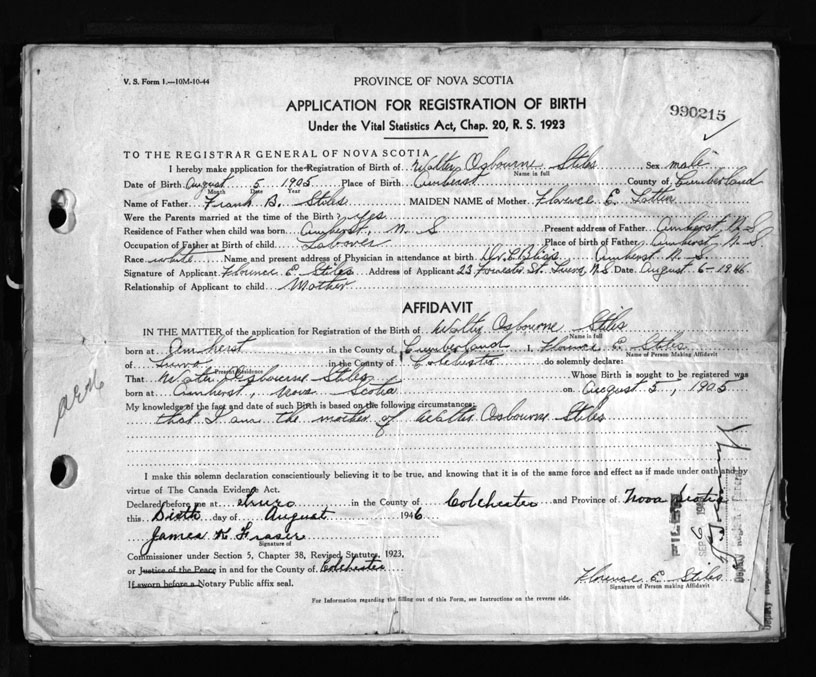 V. S. Form 1.—10M-10-44
PROVINCE OF NOVA SCOTIA
APPLICATION FOR REGISTRATION OF BIRTH
990215
Under the Vital Statistics Act, Chap. 20, R. S. 1923
TO THE REGISTRAR GENERAL OF NOVA SCOTIA
I hereby make application for the Registration of Birth of Walter Osbourne Stiles Sex male
Name in full
Date of Birth August 5 1905 Place of Birth Amherst County of Cumberland
Month Date Year
Name of Father Frank B. Stiles MAIDEN NAME of Mother Florence E.
Were the Parents married at the time of the Birth? yes
Residence of Father when child was born Amherst, N. S Present address of Father Amherst, N. S
Occupation of Father at Birth of child Laborer Place of birth of Father Amherst, N. S
Race white Name and present address of Physician in attendance at birth Dr. C. Bliss Amherst N. S.
Signature of Applicant Florence E Stiles Address of Applicant 23 Forrester St. Truro, N.S Date August 6-1946
Relationship of Applicant to child Mother
AFFIDAVIT
IN THE MATTER of the application for Registration of the Birth of Walter Osbourne Stiles
Name in full
born at Amherst in the County of Cumberland I, Florence E. Stiles
Name of Person Making Affidavit
of Truro in the County of Colchester do solemnly declare:
Present Residence
That Walter Osbourne Stiles Whose Birth is sought to be registered was
born at Amherst, Nova Scotia on August 5, 1905
My knowledge of the fact and date of such Birth is based on the following circumstances:
that I am the mother of Walter Osbourne Stiles
I make this solemn declaration conscientiously believing it to be true, and knowing that it is of the same force and effect as if made under oath and by
virtue of The Canada Evidence Act.
Declared before me at Truro in the County of Colchester and Province of Nova Scotia
this Sixth day of August 1946
James K Fraser
Signature of
Commissioner under Section 5, Chapter 38, Revised Statutes, 1923,
or Justice of the Peace in and for the County of Colchester
If sworn before a Notary Public affix seal.
Florence E. Stiles
Signature of Person making Affidavit
For Information regarding the filling out of this Form, see Instructions on the reverse side.